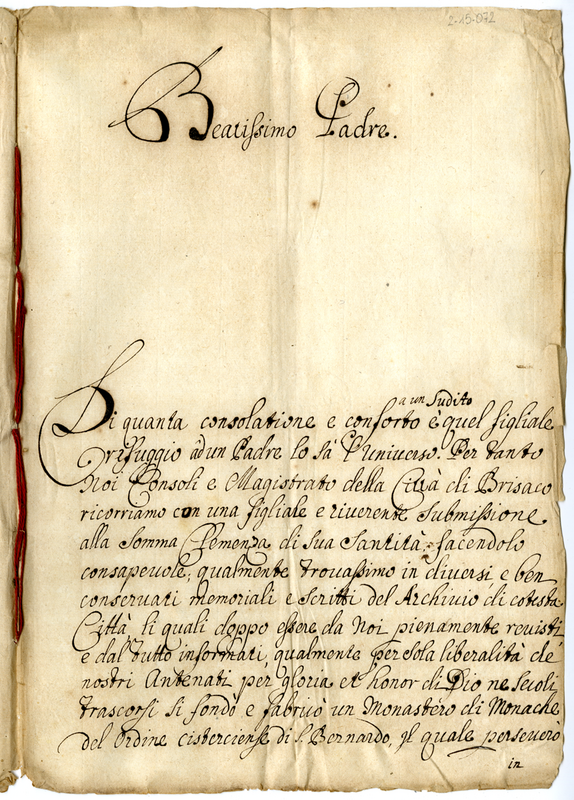 2-15-072
Beatissimo Padre.
a un Sudito
Di quanta consolatione e conforto è quel figliale
riffuggio ad un Padre lo sà l'Universo. Per tanto
Noi Consoli e Magistrato della Città di Brisaco
ricorriamo con una figliale e riverente Submissione
alla Somma Clemenza di Sua Santità, facendolo
consapevole, qualmente trovassimo in diversi e ben
conservati memoriali e scritti del Archivio di cotesta
Città li quali doppo essere da Noi pienamente revisti
e dal tutto informati, qualmente per sola liberalità de
nostri Antenati per gloria et honor di Dio ne Secoli
trascorsi si fondò e fabricò un Monastero di Monache
del Ordine cisterciense di S. Bernardo, Il quale perseverò
in